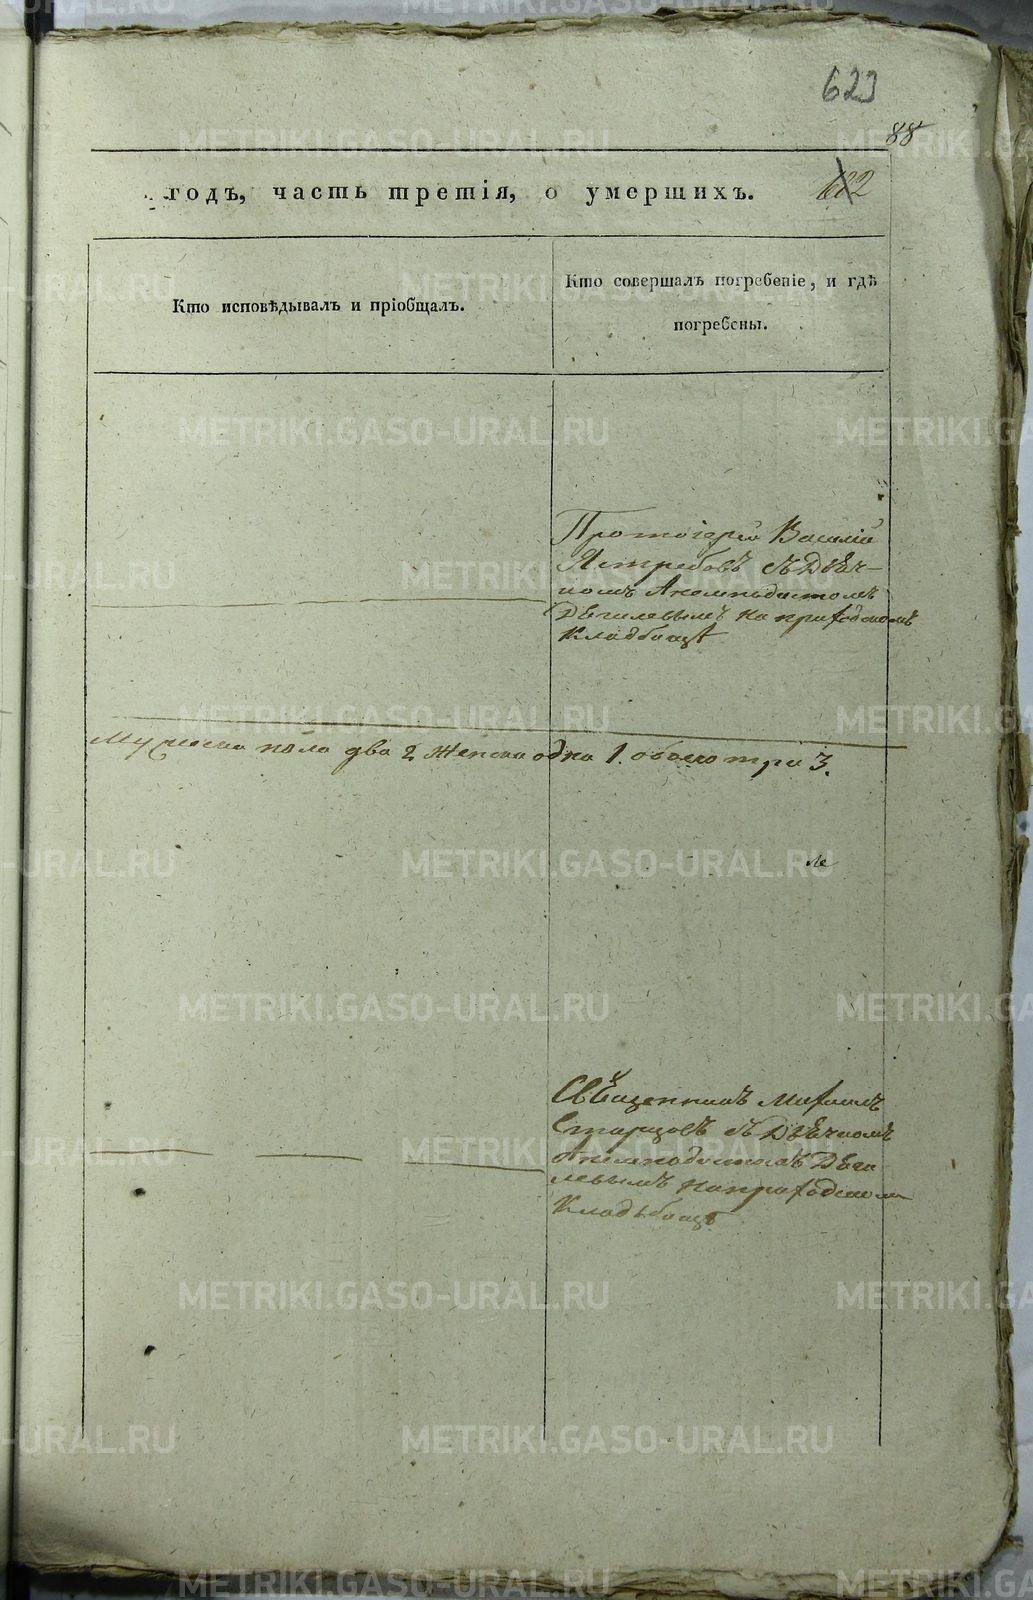 623
88
622
годъ, часть третія, о умершихъ.
Кто исповѣдывалъ и пріобщалъ.
Кто совершалъ погребеніе, и гдѣ
погребены.
Протоіерей Василій
Ястребовъ съ Дьяч-
комъ Анемподистомъ
Дягилевымъ на приходскомъ
Кладбищѣ
Мужеска пола два 2 женска одна 1. обоего три 3.
Священникъ Михаилъ
Старцовъ съ Дьячкомъ
Анемподистомъ Дяги
левымъ на приходском
Кладьбищѣ
METRIKI.GASO-URAL.RU